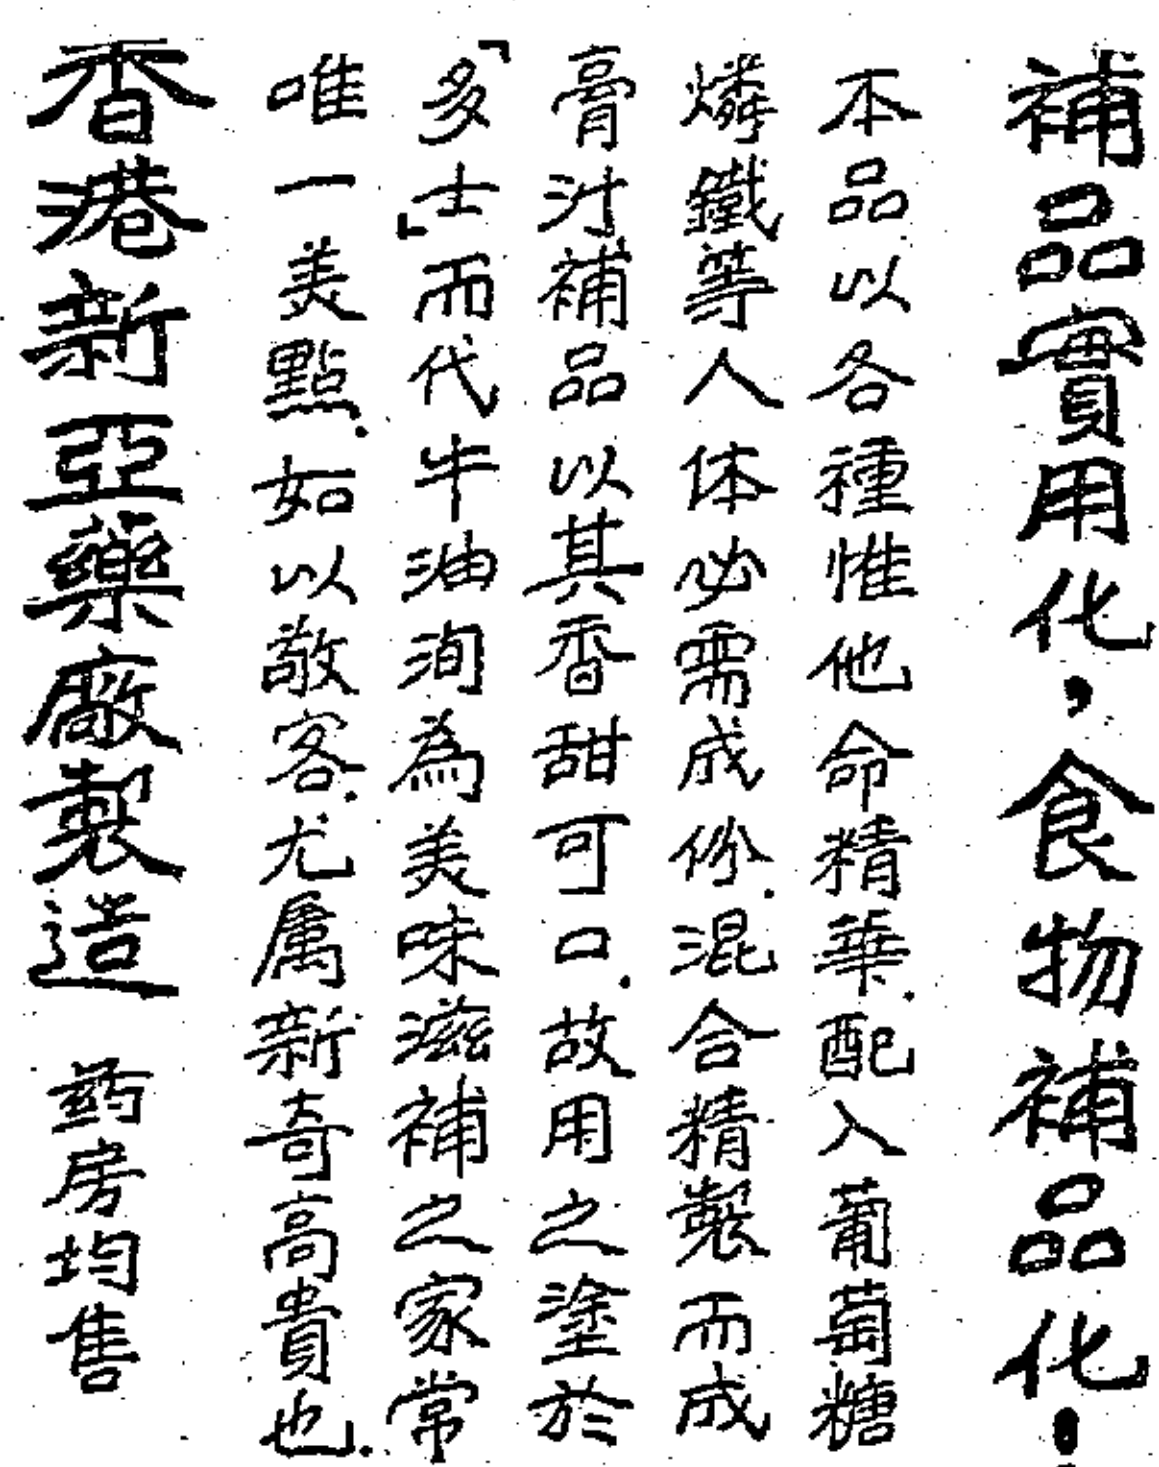 補品實用化，食物補品化！
本品以各種惟他命精華.配入葡萄糖
燐鐵等人体必需成份.混合精製而成
膏汁補品以其香甜可口.故用之塗於
「多士」而代牛油洵為美味滋補之家常
唯一美點.如以敬客.尤属新奇高貴也.
香港新亞藥廠製造 葯房均售